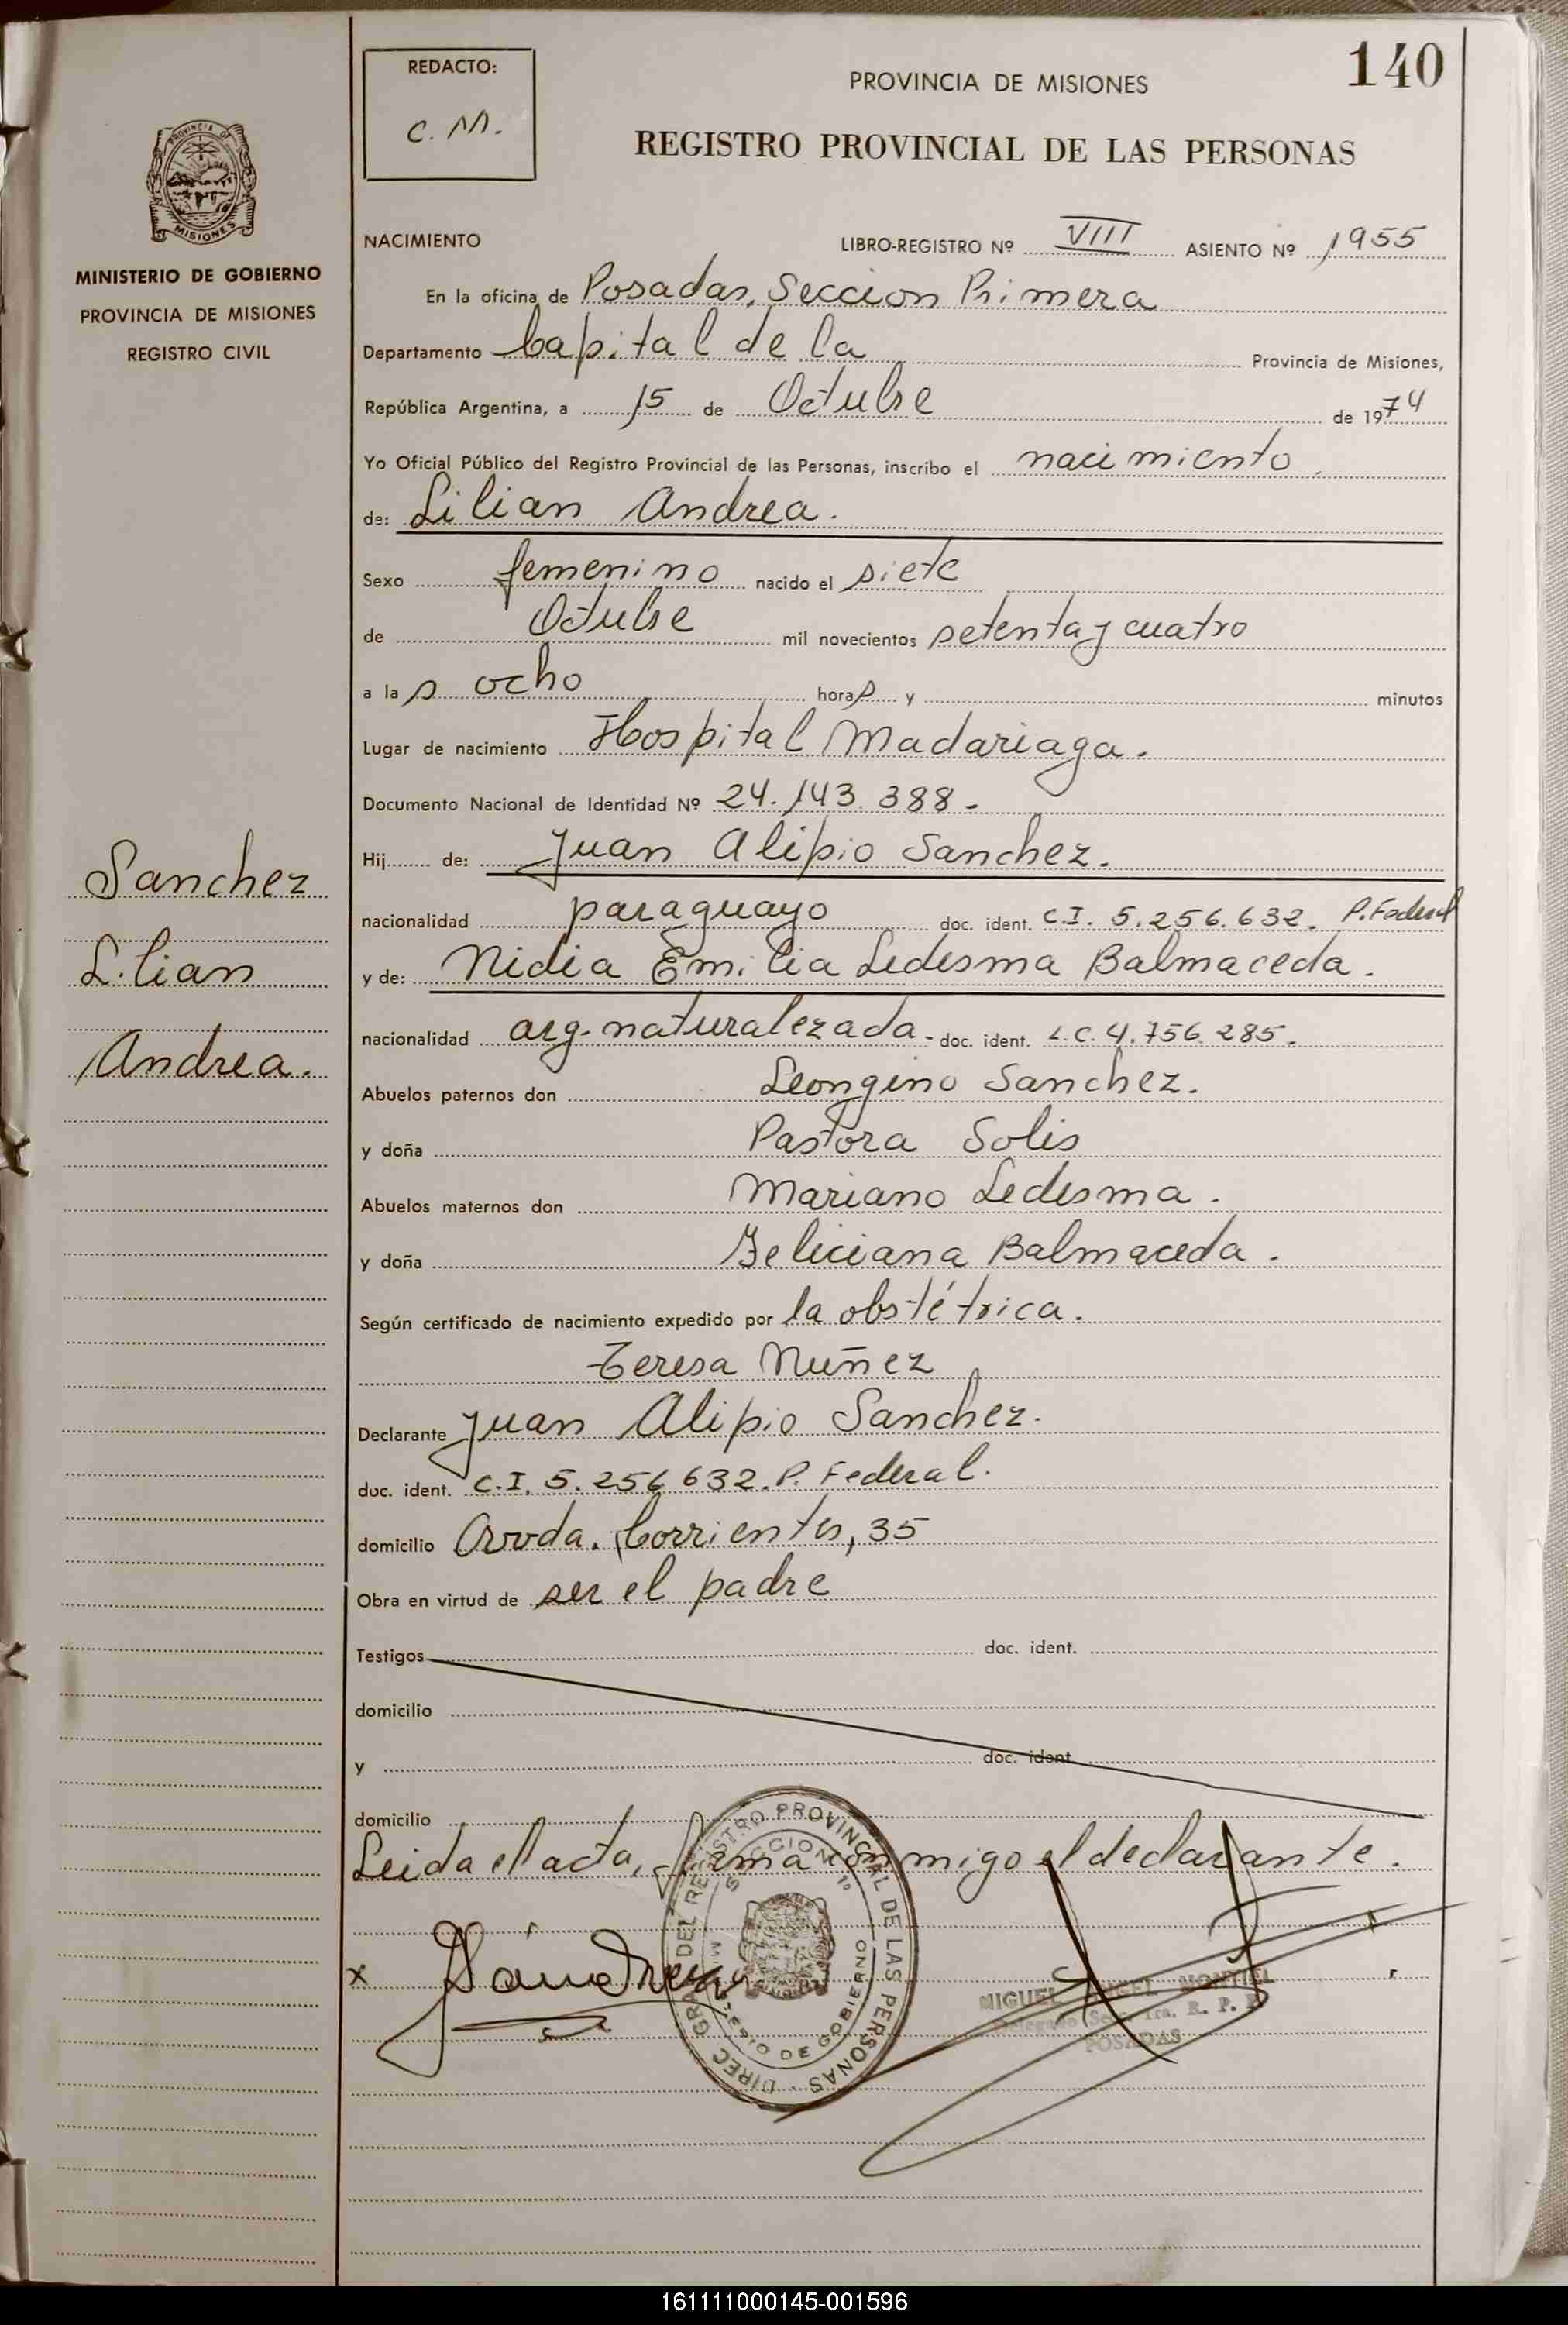 140
REDACTO:
C. M.
PROVINCIA DE MISIONES
REGISTRO PROVINCIAL DE LAS PERSONAS
PROVINCIA DE
MISIONES
MINISTERIO DE GOBIERNO
PROVINCIA DE MISIONES
REGISTRO CIVIL
NACIMIENTO LIBRO-REGISTRO Nº VIII ASIENTO Nº 1955
En la oficina de Posadas, Seccion Primera
Departamento Capital de la Provincia de Misiones,
República Argentina, a 15 de Octubre de 1974
Yo Oficial Público del Registro Provincial de las Personas, inscribo el nacimiento
de: Lilian Andrea.
Sexo femenino nacido el siete
de Octubre mil novecientos setenta y cuatro
a la s ocho hora s y minutos
Lugar de nacimiento Hospital Madariaga.
Documento Nacional de Identidad Nº 24.143.388-
Hij de: Juan Alipio Sanchez.
nacionalidad paraguayo doc. ident. C.I. 5.256.632. P. Federal
y de: Nidia Emilia Ledesma Balmaceda.
nacionalidad arg. naturalezada - doc. ident. L.C. 4.756.285.
Abuelos paternos don Leongino Sanchez.
y doña Pastora Solis
Abuelos maternos don Mariano Ledesma.
y doña Feliciana Balmaceda.
Según certificado de nacimiento expedido por la obstétrica.
Teresa Nuñez
Declarante Juan Alipio Sanchez.
doc. ident. C.I. 5.256.632. P. Federal.
domicilio Avda. Corrientes, 35
Obra en virtud de ser el padre
Testigos doc. ident.
domicilio
y doc. ident.
domicilio
Leida el acta, firma conmigo el declarante.
Sanchez
Lilian
Andrea.
x
DIREC. GRAL DEL REGISTRO PROVINCIAL DE LAS PERSONAS
SECCION 1º
MINISTERIO DE GOBIERNO
MIGUEL ANGEL MONTIEL
Delegado Secc. 1ra. R. P. P.
POSADAS
161111000145-001596